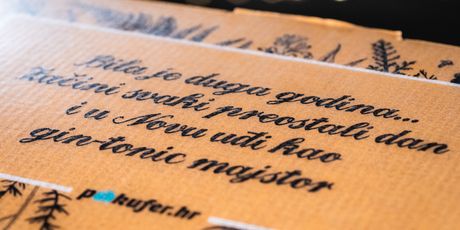 Bila je duga godina...
Začini svaki preostali dan
i u Novu uđi kao
gin-tonic majstor
pokufer.hr